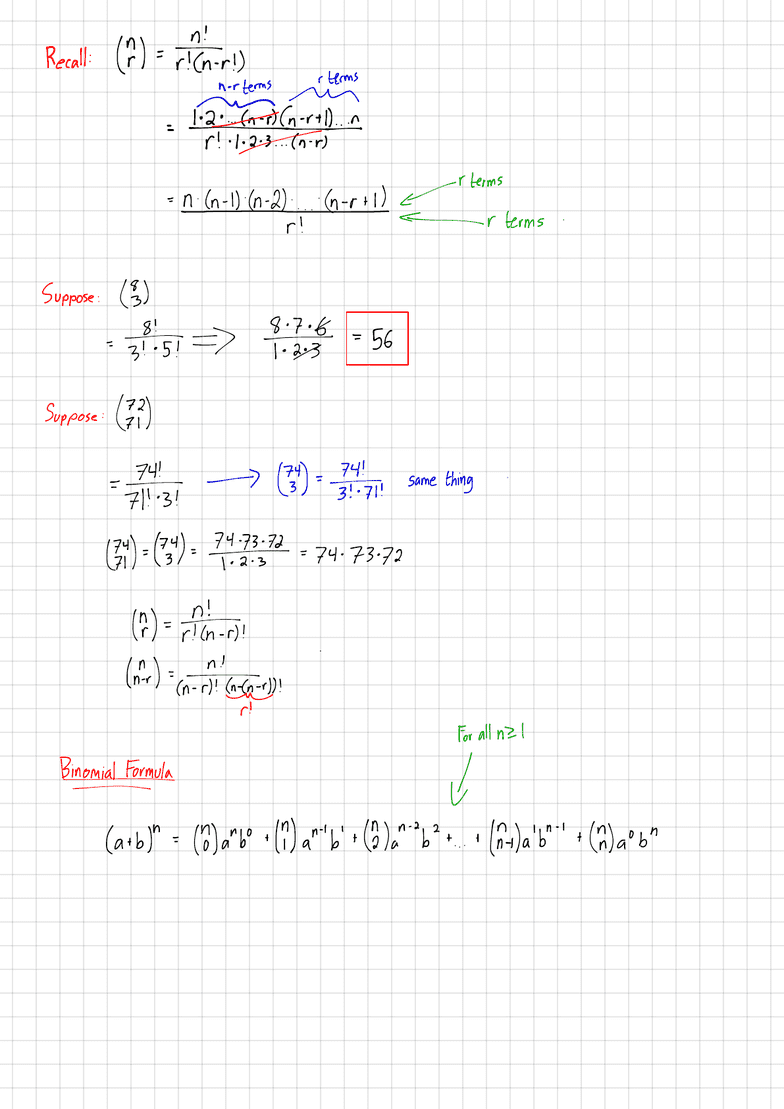 Recall: (n r) = n! / r!(n-r!)
n-r terms r terms
= 1·2·...(n-r)(n-r+1)...n / r!·1·2·3...(n-r)
r terms
= n·(n-1)·(n-2)·...·(n-r+1) / r!
r terms
Suppose: (8 3)
= 8! / 3!·5! ⟹ 8·7·6 / 1·2·3 = 56
Suppose: (72 71)
= 74! / 71!·3! → (74 3) = 74! / 3!·71! same thing
(74 71) = (74 3) = 74·73·72 / 1·2·3 = 74·73·72
(n r) = n! / r!(n-r)!
(n n-r) = n! / (n-r)!(n-(n-r))!
r!
For all n≥1
Binomial Formula
(a+b)ⁿ = (n 0)aⁿb⁰ + (n 1)aⁿ⁻¹b¹ + (n 2)aⁿ⁻²b² + ... + (n n-1)a¹bⁿ⁻¹ + (n n)a⁰bⁿ